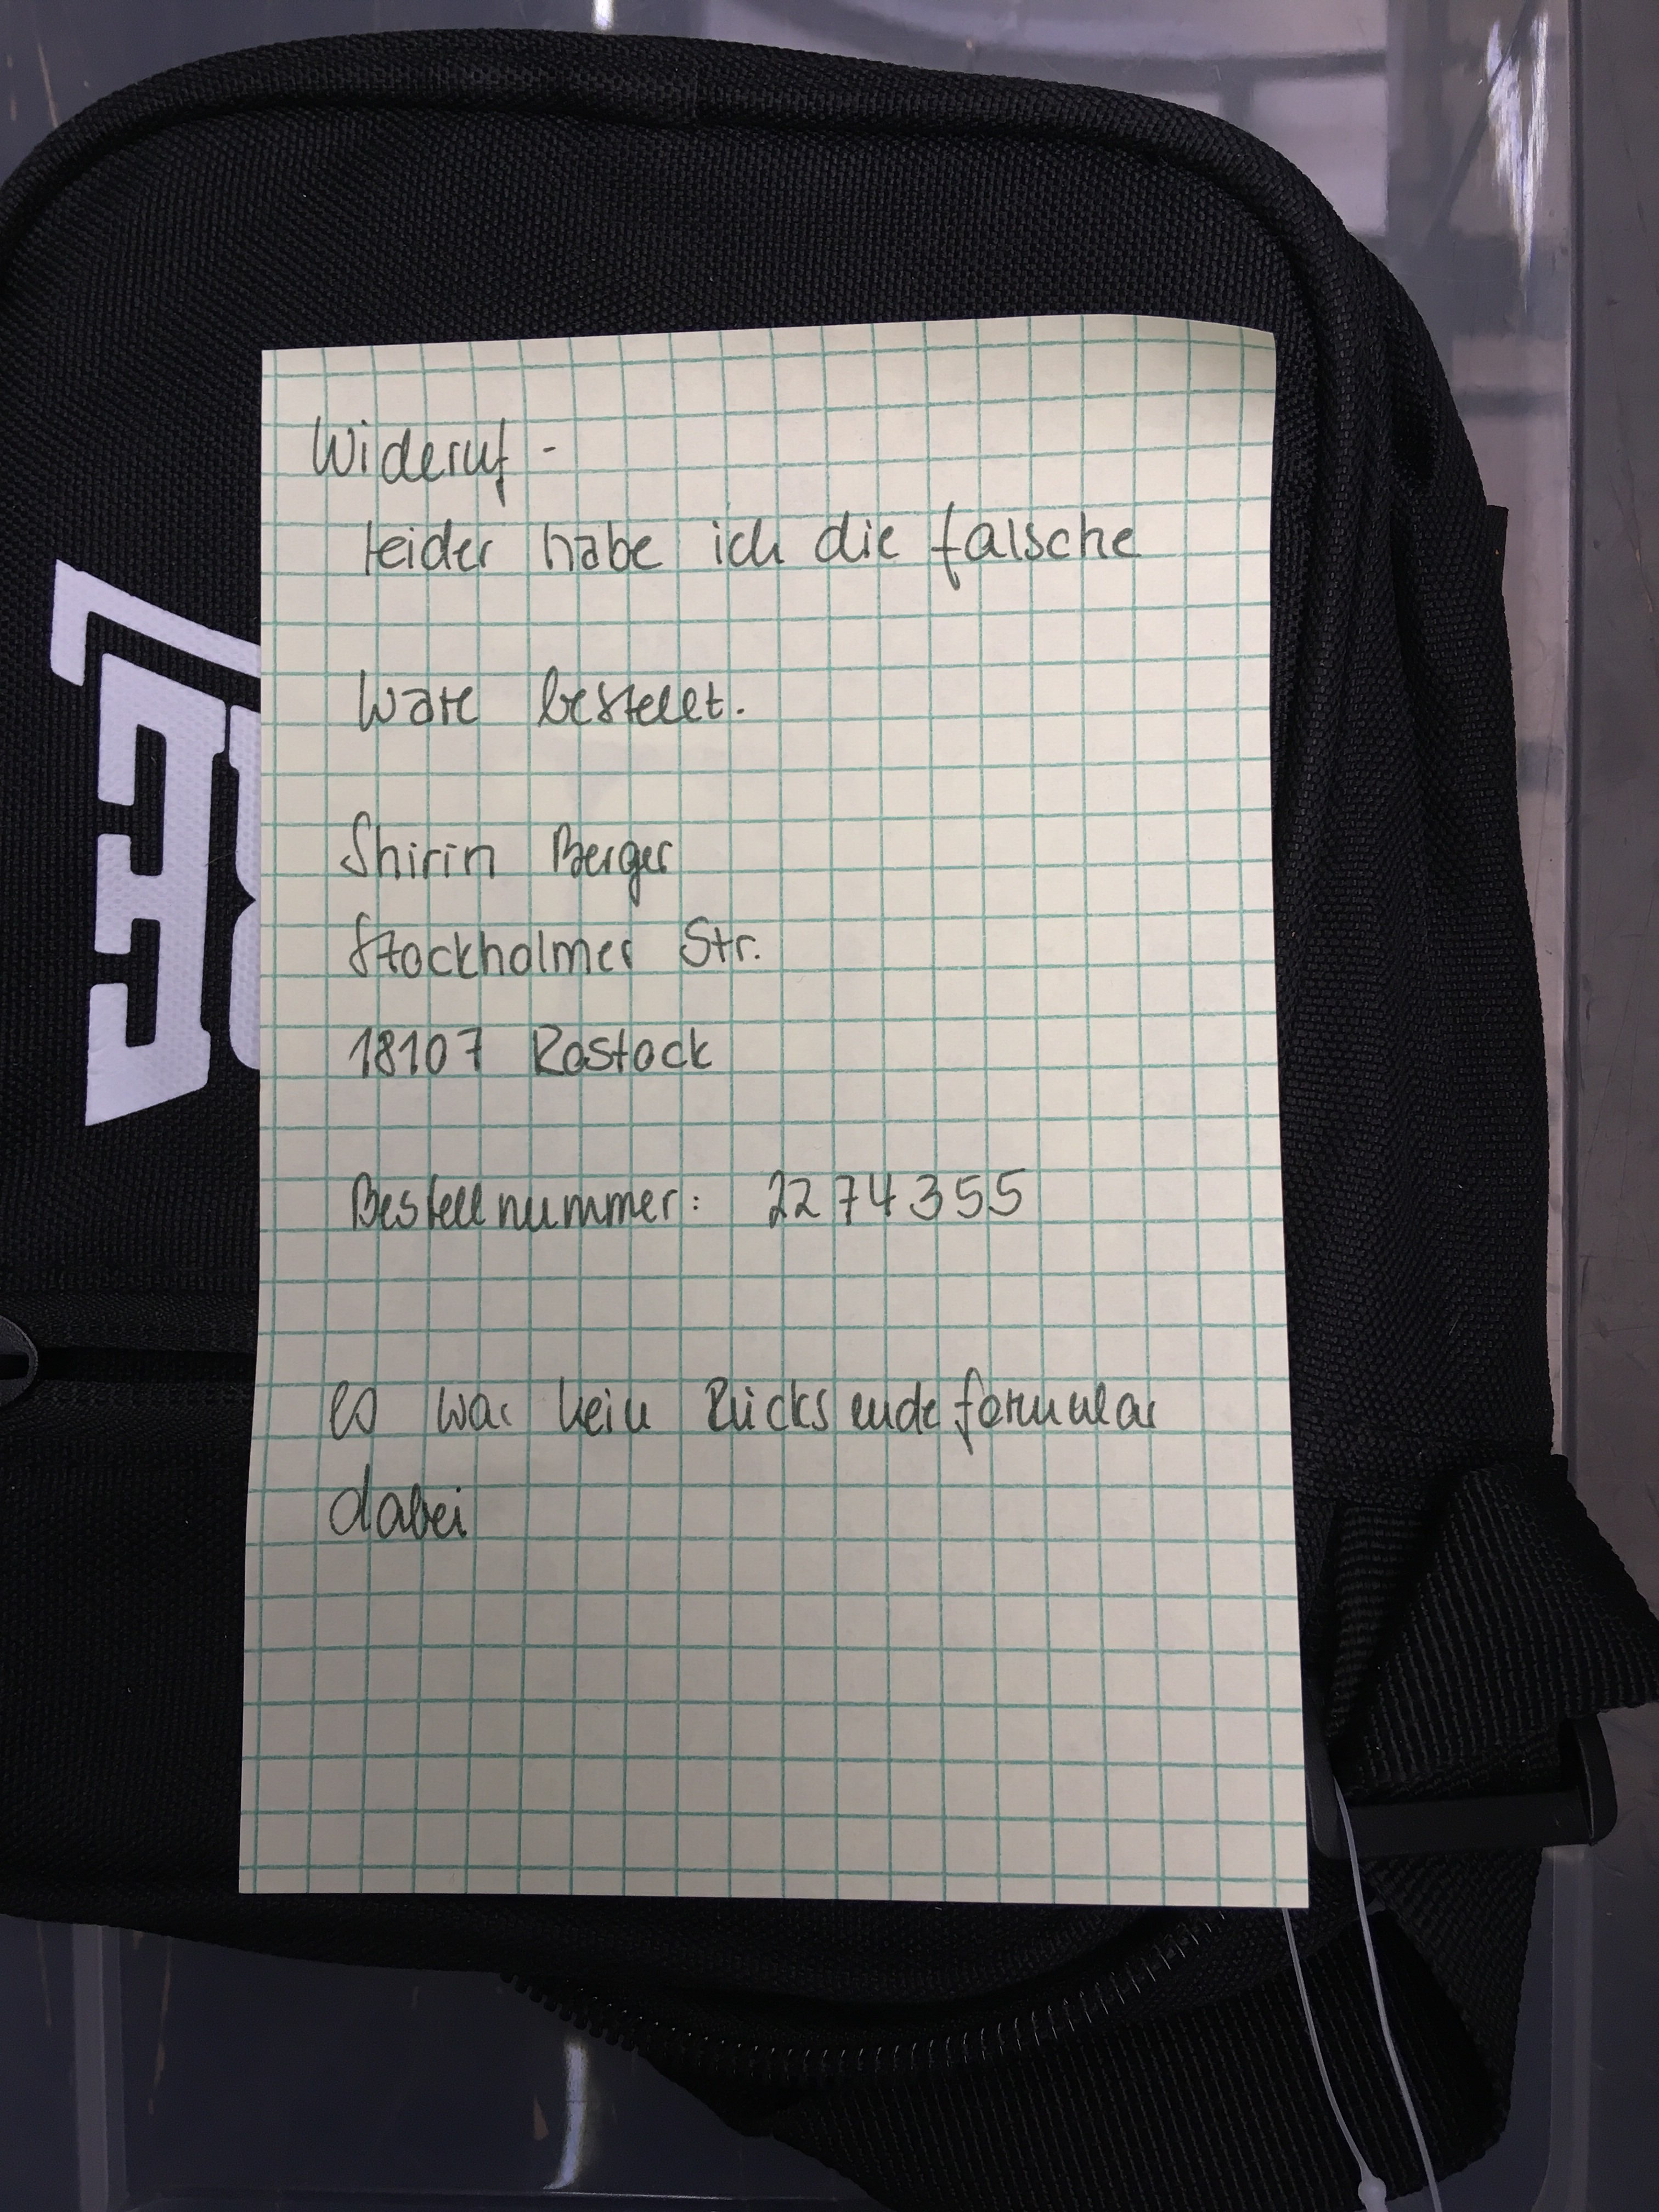 Wideruf -
leider habe ich die falsche
Ware bestellt.
Shirin Berger
Stockholmer Str.
18107 Rostock
Bestellnummer: 2274355
es war kein Rücksendeformular
dabei